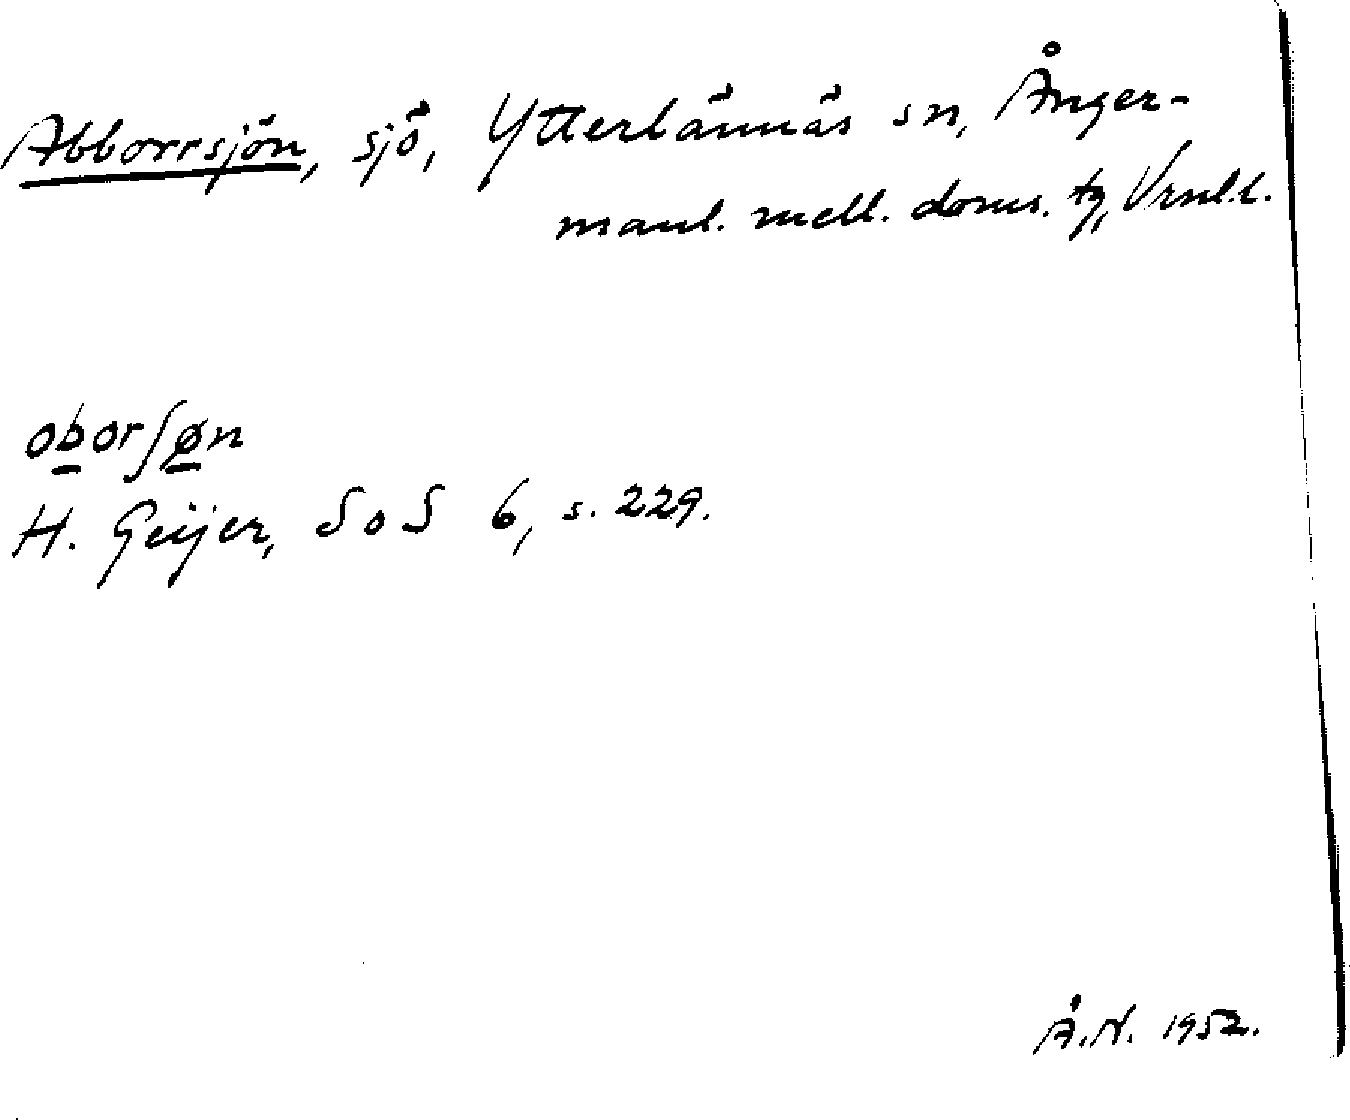 Abborrsjön, sjö, Ytterlännäs sn, Ånger-
manl. mell. doms. tg, Vrnl.l.
oborʃøn
H. Geijer, SoS 6, s. 229.
Å.N. 1952.